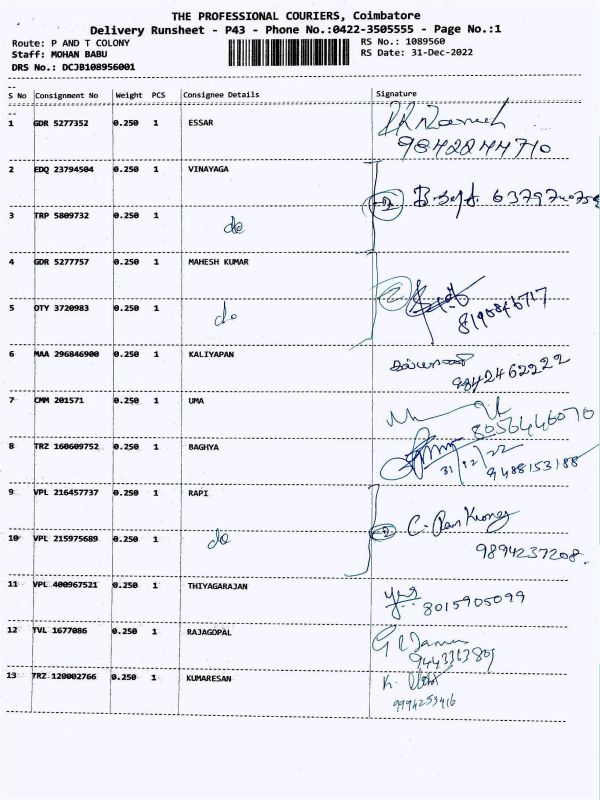 THE PROFESSIONAL COURIERS, Coimbatore
Delivery Runsheet - P43 - Phone No.:0422-3505555 - Page No.:1
Route: P AND T COLONY RS No.: 1089560
Staff: MOHAN BABU RS Date: 31-Dec-2022
DRS No.: DCJB108956001
S No Consignment No Weight PCS Consignee Details Signature
1 GDR 5277352 0.250 1 ESSAR
9842244710
2 EDQ 23794504 0.250 1 VINAYAGA
2
3 TRP 5809732 0.250 1 do
4 GDR 5277757 0.250 1 MAHESH KUMAR
2
5 OTY 3720983 0.250 1 do
8190846717
6 MAA 296846900 0.250 1 KALIYAPAN
9842462222
7 CMM 201571 0.250 1 UMA
8056446070
8 TRZ 160609752 0.250 1 BAGHYA
31/12/22 9488153188
9 VPL 216457737 0.250 1 RAPI
2
10 VPL 215975689 0.250 1 do
9894237208.
11 VPL 400967521 0.250 1 THIYAGARAJAN
8015905099
12 TVL 1677086 0.250 1 RAJAGOPAL
13 TRZ 120002766 0.250 1 KUMARESAN
9994253416